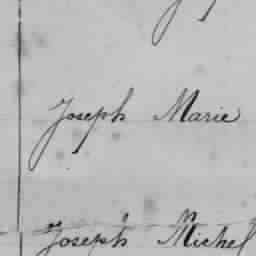 Joseph Marie
Joseph Michel